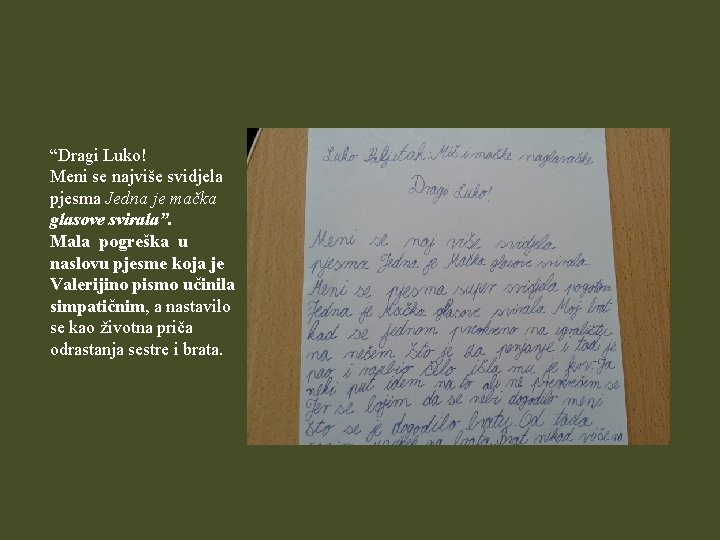 “Dragi Luko!
Meni se najviše svidjela
pjesma Jedna je mačka
glasove svirala”.
Mala pogreška u
naslovu pjesme koja je
Valerijino pismo učinila
simpatičnim, a nastavilo
se kao životna priča
odrastanja sestre i brata.
Luko Paljetak: Miš i mačke naglavačke
Dragi Luko!
Meni se naj više svidjela
pjesma Jedna je Mačka glasove svirala.
Meni se pjesma super svidjela pogotom
Jedna je Mačka glasove svirala Moj brat
kad se jednom na igralištu
na nečem što je za penjanje i tad je
pao i razbio čelo išla mu je krv. Ja
neki put idem na to ali ne se
Jer se bojim da se nebi dogodilo meni
što se je dogodilo bratu. Od tada
na brata. brat nikad više